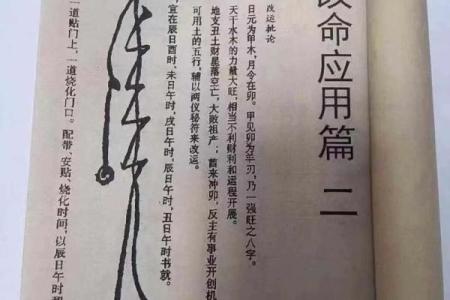 改命应用篇 二
改运批论
日元为甲木，月令在卯。甲见卯为羊刃，乃一强旺之八字。
天干水木的力量大旺，相当不利财利和运程开展。
地支丑土财星落空亡，大败祖产；酉来冲卯，反主有事业开创机
可用土的五行，辅以两仪秘符来改运。
宜在辰日酉时、未日午时、戌日午时、辰日午时、丑日午时书就。
一道贴门上，一道烧化门口。配带、安贴、烧化时间，以辰日午时